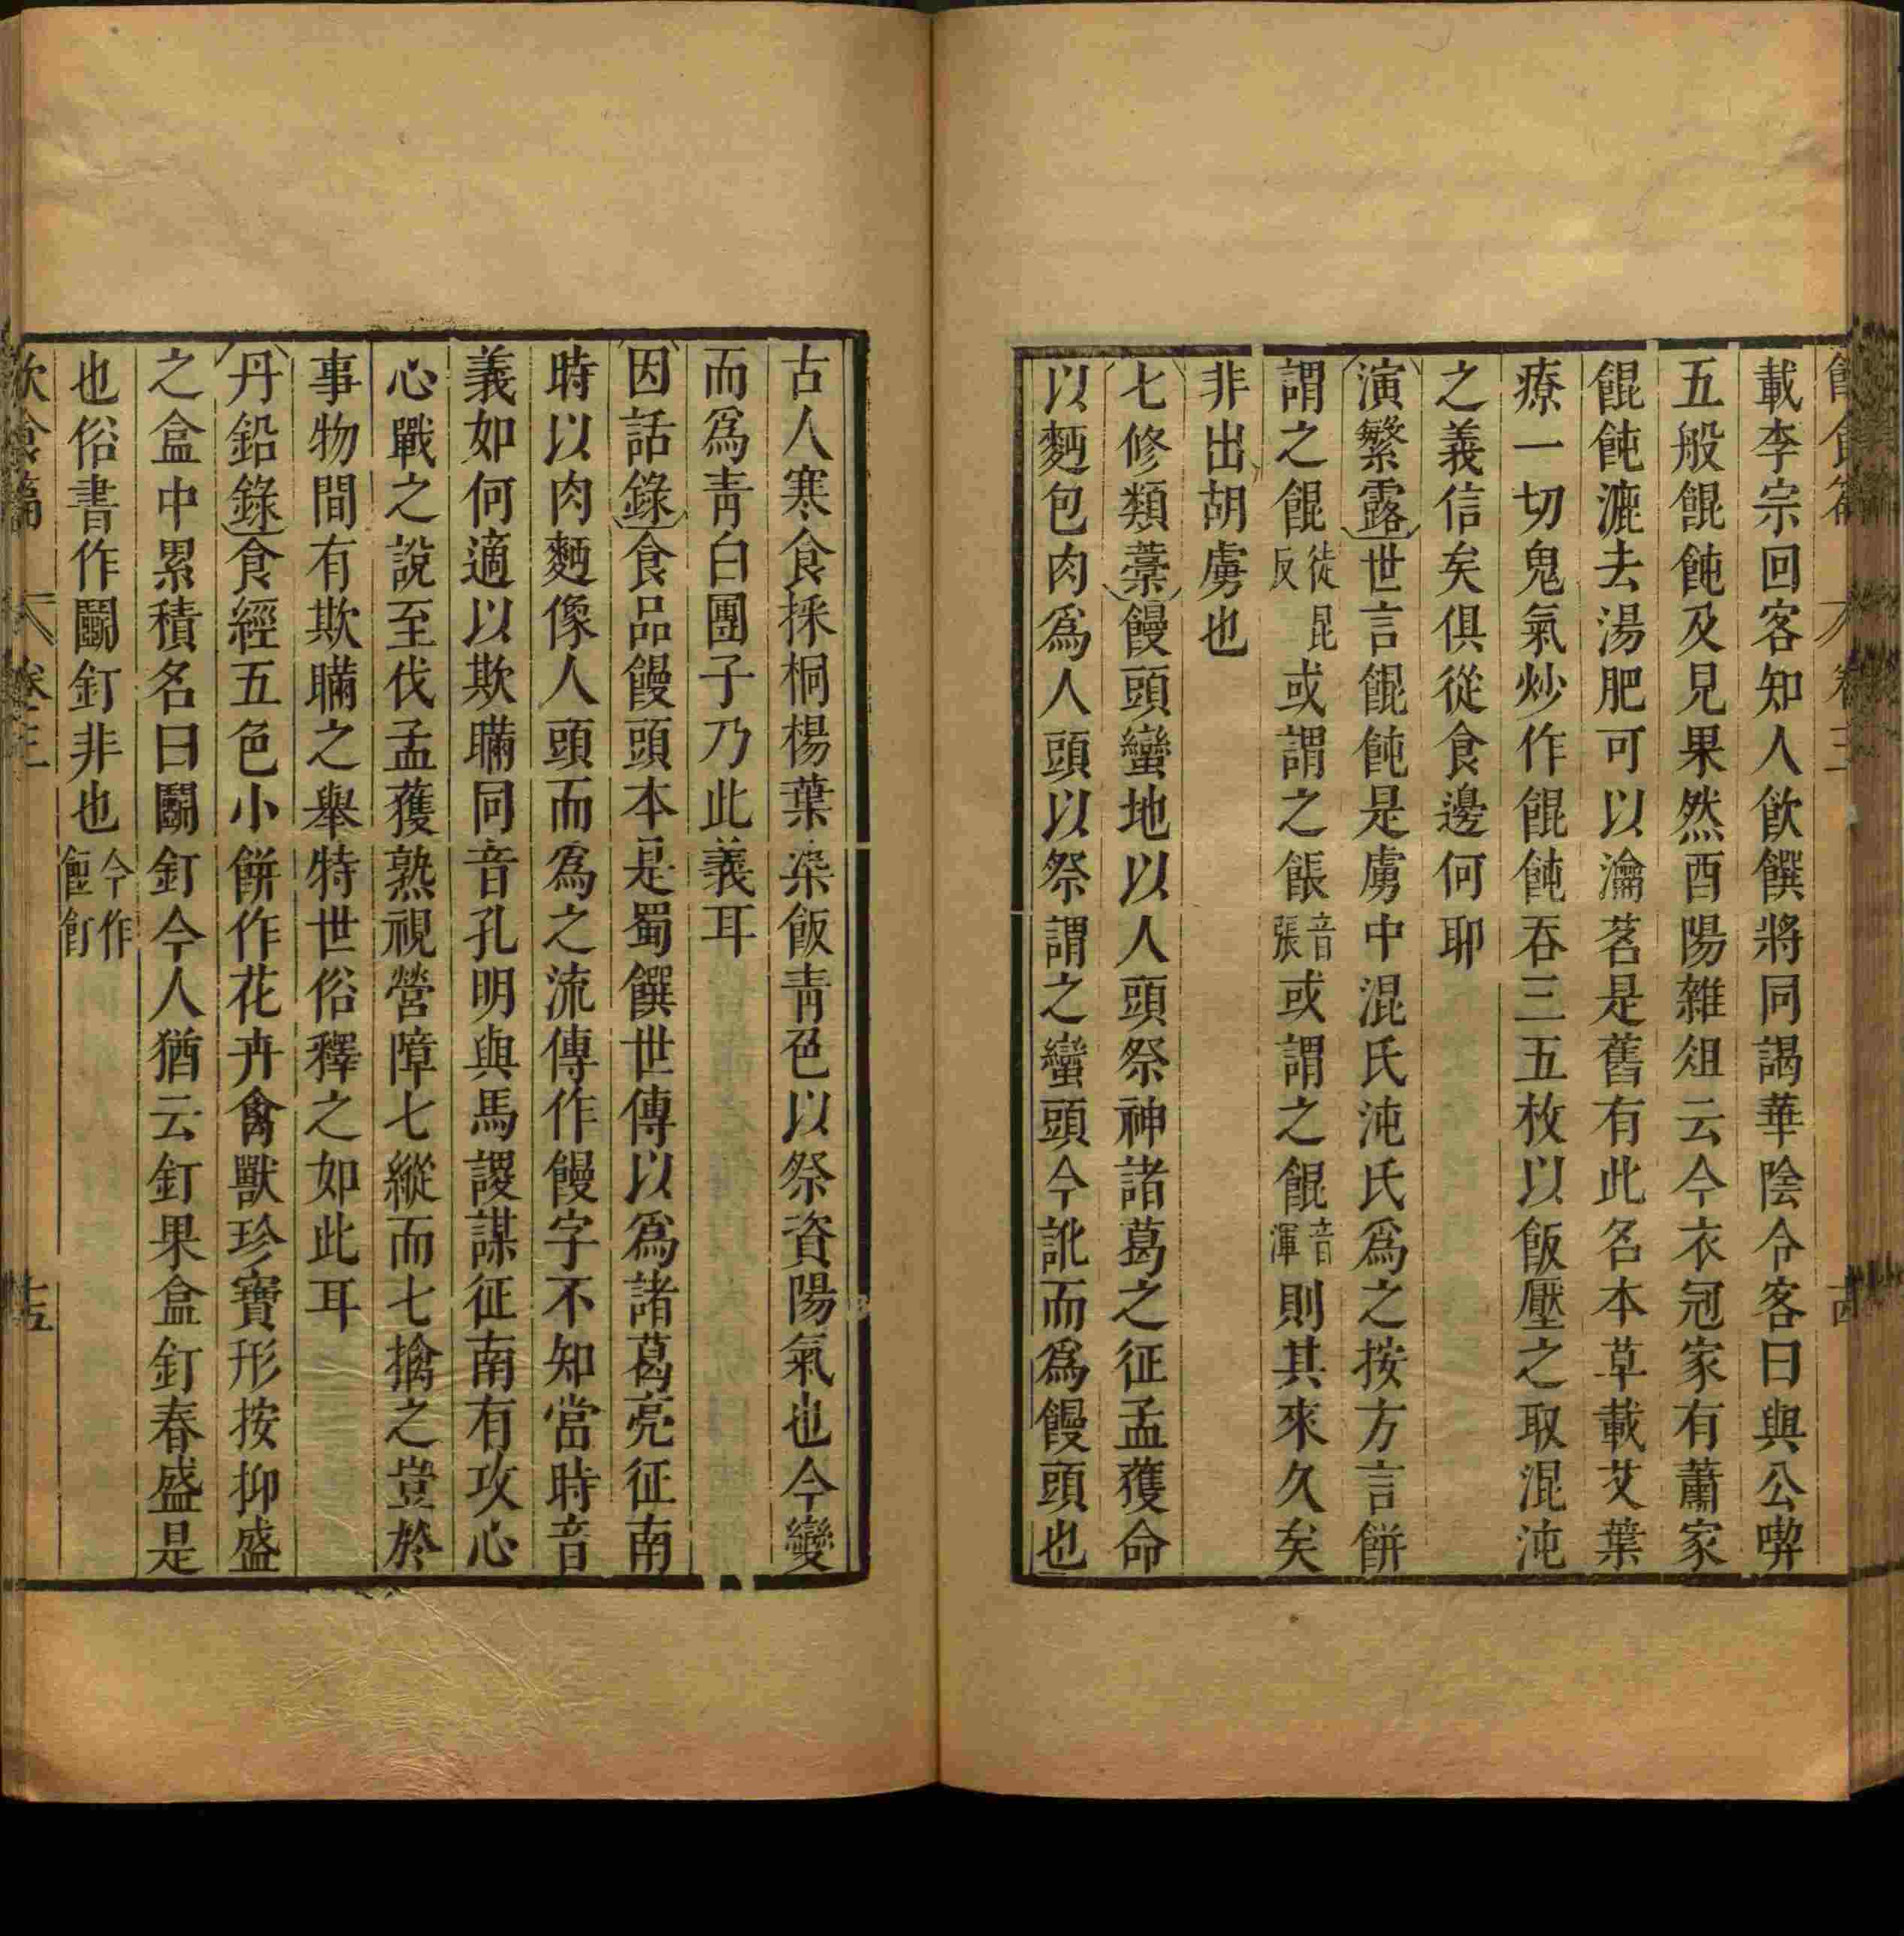 載李宗回客知人飲饌將同謁華陰令客曰與公喫
五般餛飩及見果然酉陽雜俎云今衣冠家有蕭家
餛飩漉去湯肥可以瀹茗是舊有此名本草載艾葉
療一切鬼氣炒作餛飩吞三五枚以飯壓之取混沌
之義信矣俱從食邊何耶
演繁露世言餛飩是虜中混氏沌氏為之按方言餅
謂之餛徒昆反或謂之餦音張或謂之餛音渾則其來久矣
非出胡虜也
七修類藁饅頭蠻地以人頭祭神諸葛之征孟獲命
以麪包肉為人頭以祭謂之蠻頭今訛而為饅頭也
古人寒食採桐楊葉染飯青色以祭資陽氣也今變
而為青白團子乃此義耳
因話錄食品饅頭本是蜀饌世傳以為諸葛亮征南
時以肉麪像人頭而為之流傳作饅字不知當時音
義如何適以欺瞞同音孔明與馬謖謀征南有攻心
心戰之說至伐孟獲熟視營障七縱而七擒之豈於
事物間有欺瞞之舉特世俗釋之如此耳
丹鉛錄食經五色小餅作花卉禽獸珍寶形按抑盛
之盒中累積名曰鬬釘今人猶云釘果盒釘春盛是
也俗書作鬬釘非也今作餖飣
飲食篇 卷三 十五